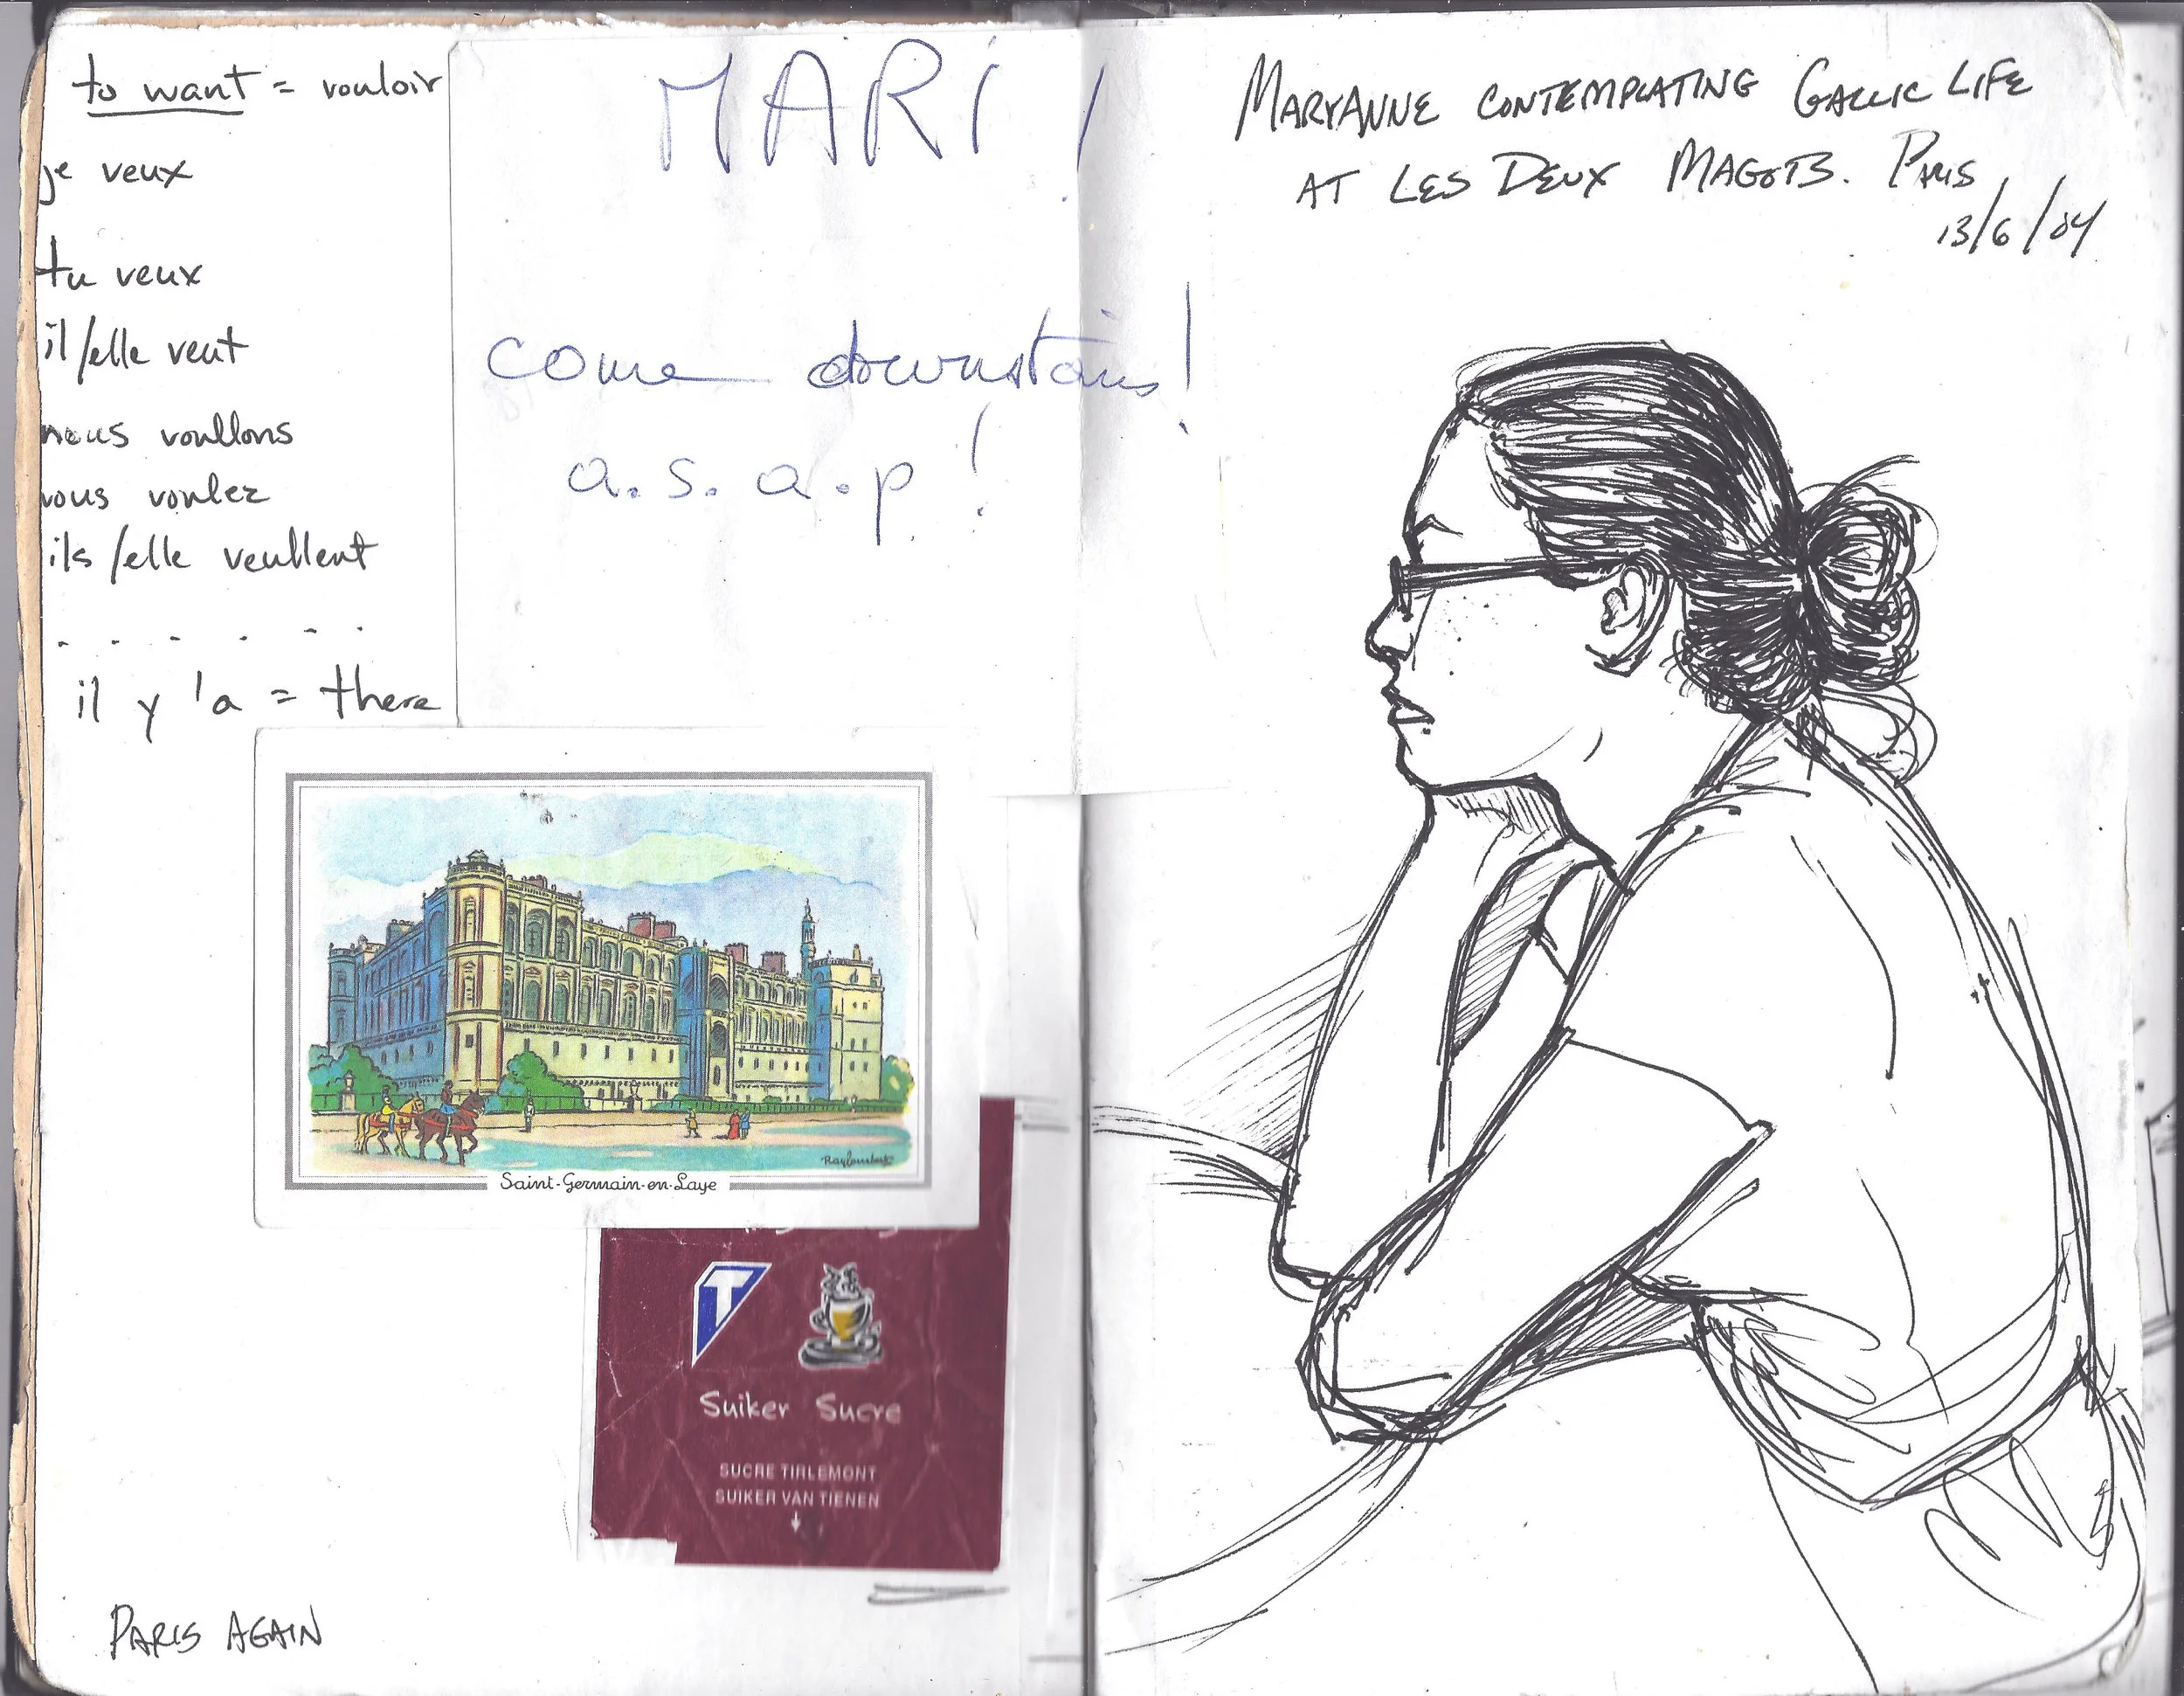 to want = vouloir
je veux
tu veux
il/elle veut
nous voullons
vous voulez
ils/elle veullent
il y 'a = there
MARI!
come downstairs!
a.s.a.p!
Saint-Germain-en-Laye
T
Suiker Sucre
SUCRE TIRLEMONT
SUIKER VAN TIENEN
PARIS AGAIN
MARYANNE CONTEMPLATING GALLIC LIFE
AT LES DEUX MAGOTS. PARIS
13/6/04